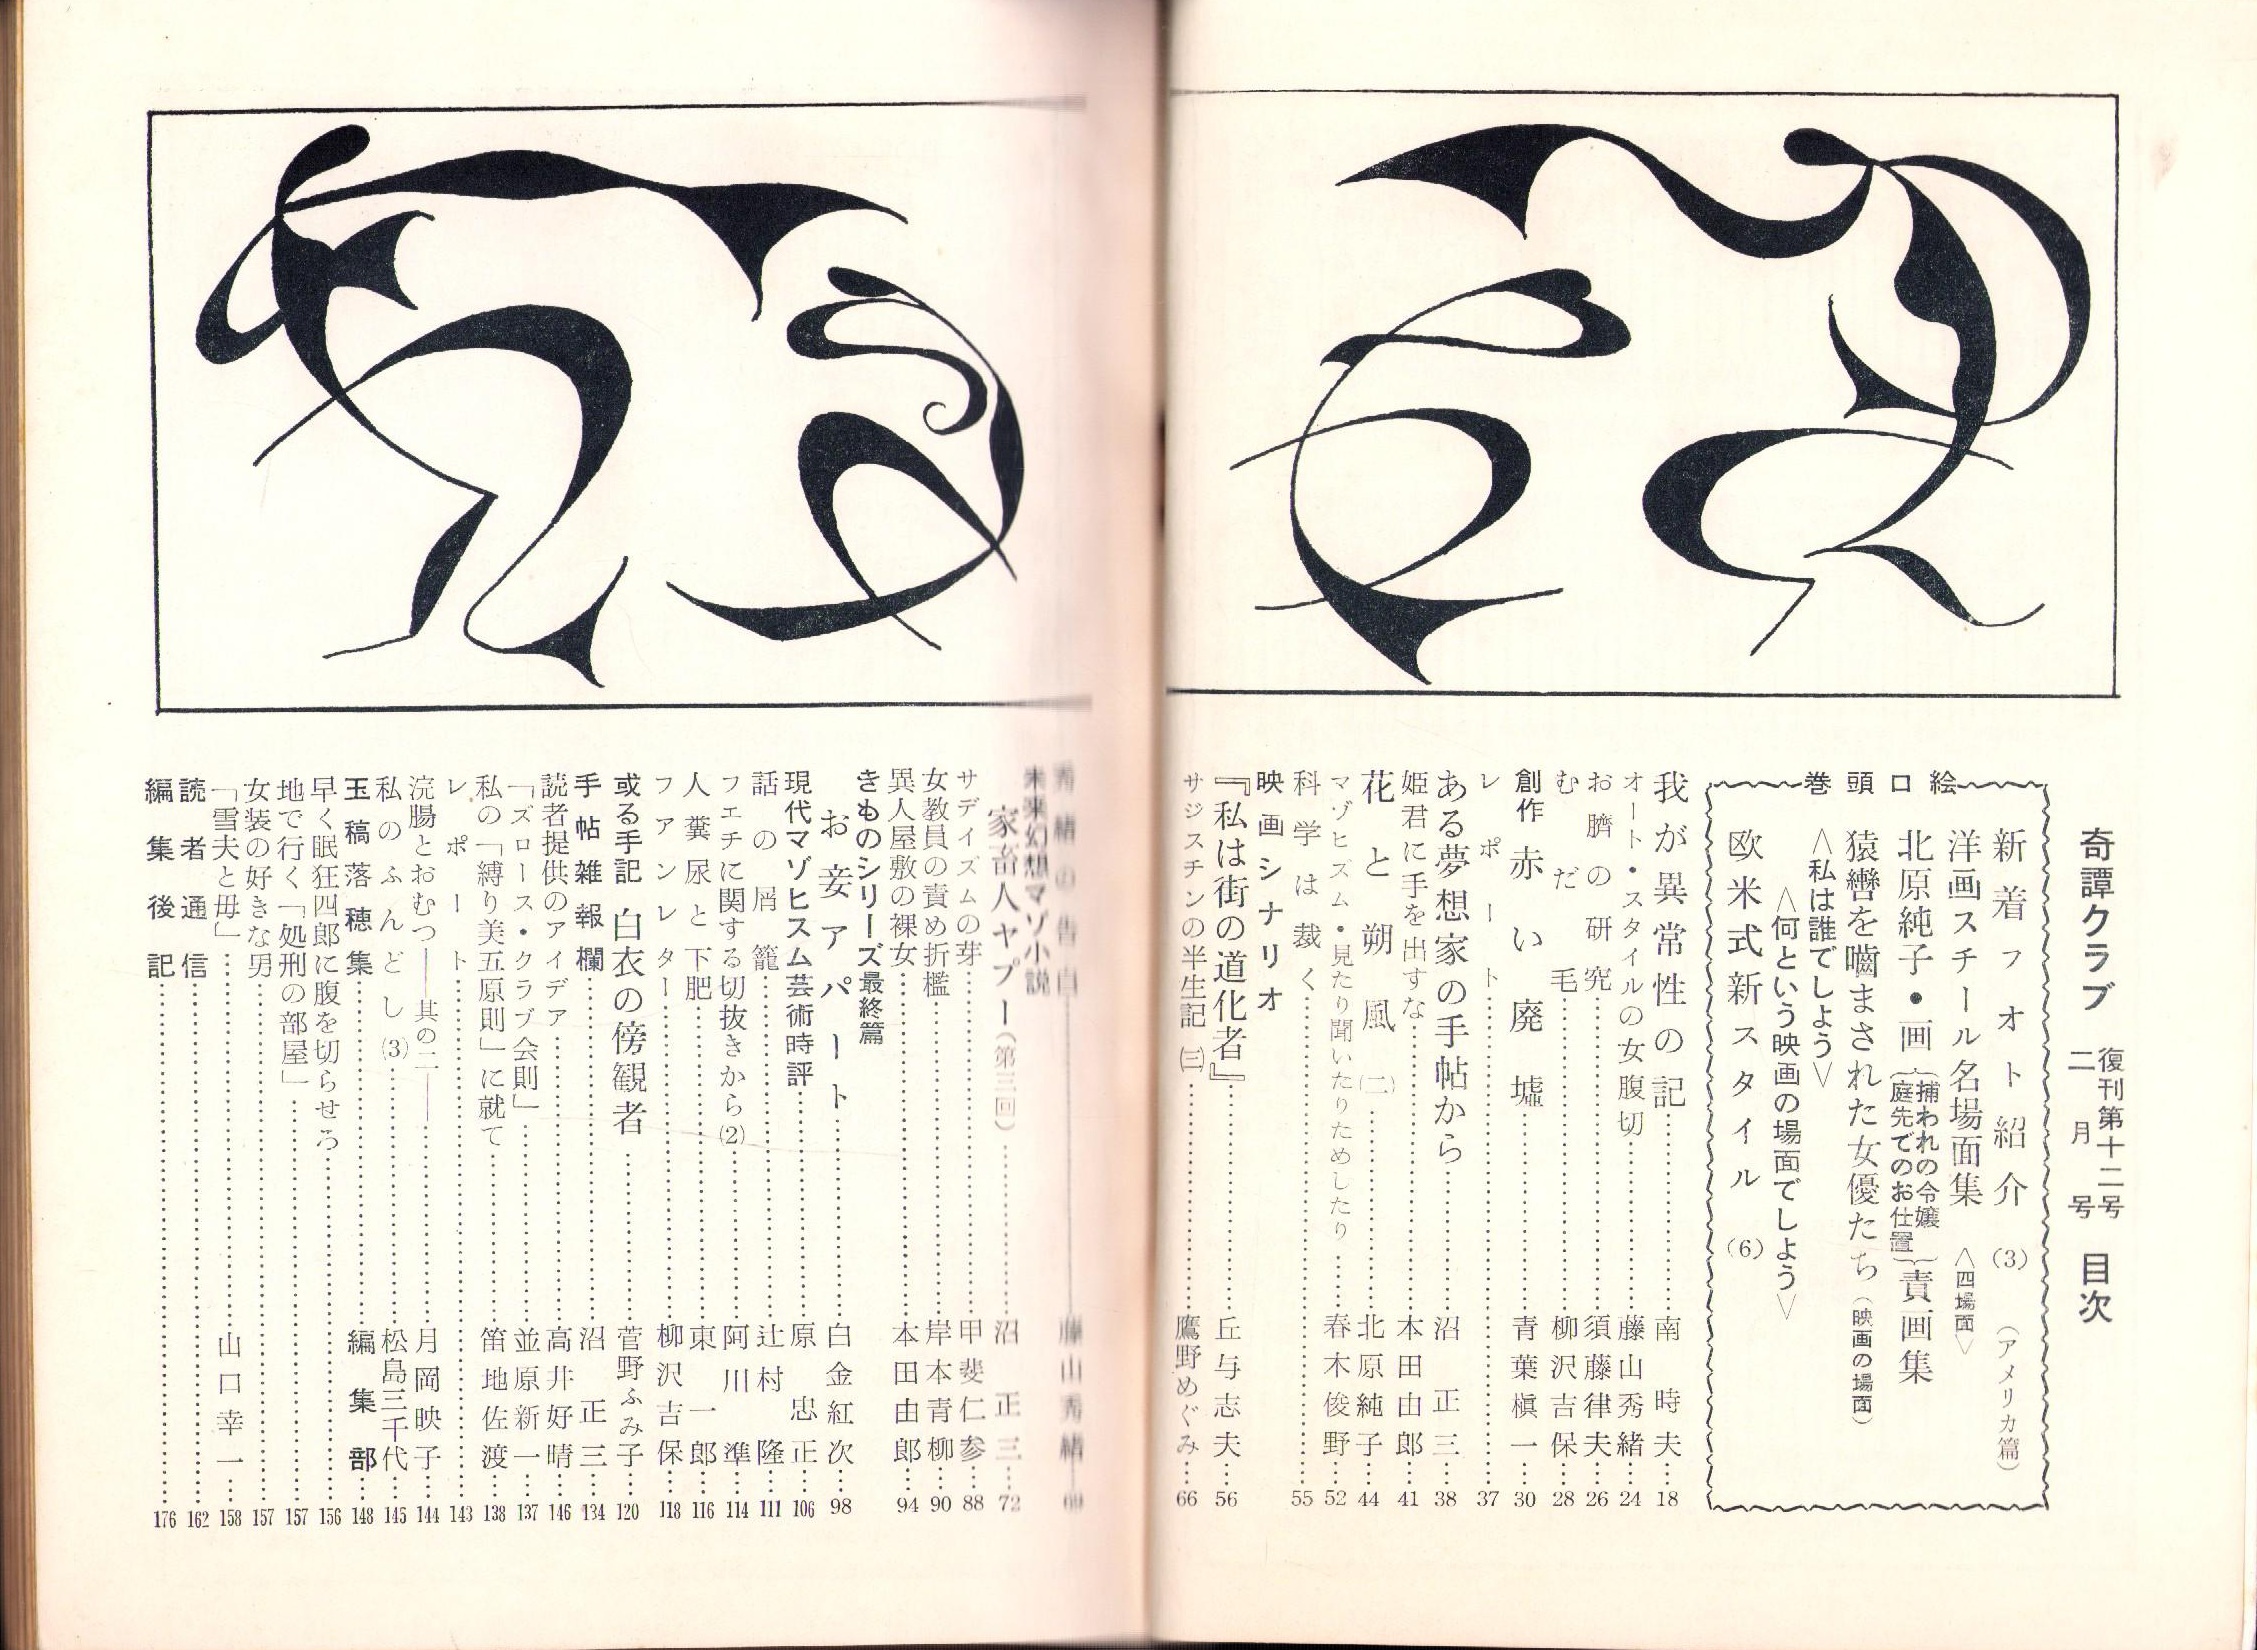 奇譚クラブ 復刊第十二号 二月号 目次
巻頭口絵
新着フオト紹介(3)(アメリカ篇)
洋画スチール名場面集〈四場面〉
北原純子・画{捕われの令嬢 庭先でのお仕置}責画集
猿轡を嚙まされた女優たち(映画の場面)
〈私は誰でしよう〉
〈何という映画の場面でしよう〉
欧米式新スタイル(6)
我が異常性の記……南時夫…18
オート・スタイルの女腹切……藤山秀緒…24
お臍の研究……須藤律夫…26
むだ毛……柳沢吉保…28
創作 赤い廃墟……青葉槇一…30
レポート……37
ある夢想家の手帖から……沼正三…38
姫君に手を出すな……本田由郎…41
花と朔風(二)……北原純子…44
マゾヒズム・見たり聞いたりためしたり……春木俊野…52
科学は裁く……55
映画シナリオ
『私は街の道化者』……丘与志夫…56
サジスチンの半生記(三)……鷹野めぐみ…66
秀緒の告白――藤山秀緒…69
未来幻想マゾ小説
家畜人ヤプー(第三回)……沼正三…72
サデイズムの芽……甲斐仁参…88
女教員の責め折檻……岸本青柳…90
異人屋敷の裸女……本田由郎…94
きものシリーズ最終篇
お妾アパート……白金紅次…98
現代マゾヒスム芸術時評……原忠正…106
話の屑籠……辻村隆…111
フエチに関する切抜きから(2)……阿川準…114
人糞尿と下肥……東一郎…116
フアンレター……柳沢吉保…118
或る手記 白衣の傍観者……菅野ふみ子…120
手帖雑報欄……沼正三…134
読者提供のアイデア……高井好晴…146
「ズロース・クラブ会則」……並原新一…137
私の「縛り美五原則」に就て……笛地佐渡…138
レポート……143
浣腸とおむつ――其の二――……月岡映子…144
私のふんどし(3)……松島三千代…145
玉稿落穂集……編集部…148
早く眠狂四郎に腹を切らせろ……156
地で行く「処刑の部屋」……157
女装の好きな男……157
「雪夫と毋」……山口幸一…158
読者通信……162
編集後記……176